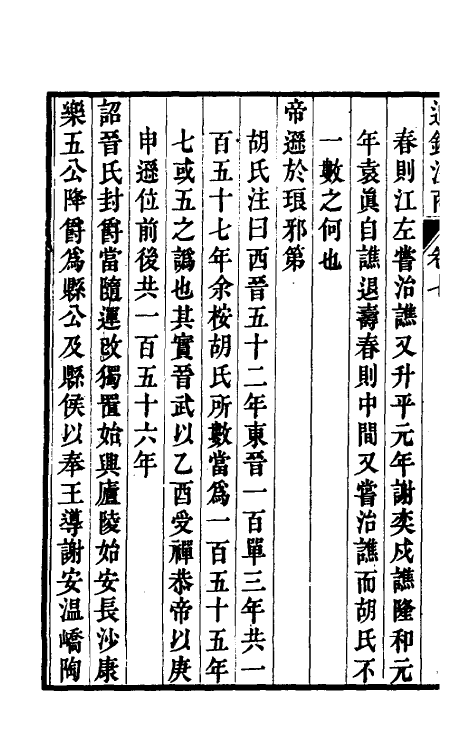 春則江左嘗治譙又升平元年謝奕戍譙隆和元
年袁眞自譙退壽春則中間又嘗治譙而胡氏不
一數之何也
帝遜於琅邪第
胡氏注曰西晉五十二年東晉一百單三年共一
百五十七年余桉胡氏所數當爲一百五十五年
七或五之譌也其實晉武以乙酉受禪恭帝以庚
申遜位前後共一百五十六年
詔晉氏封爵當隨運改獨置始興廬陵始安長沙康
樂五公降爵爲縣公及縣侯以奉王導謝安温嶠陶